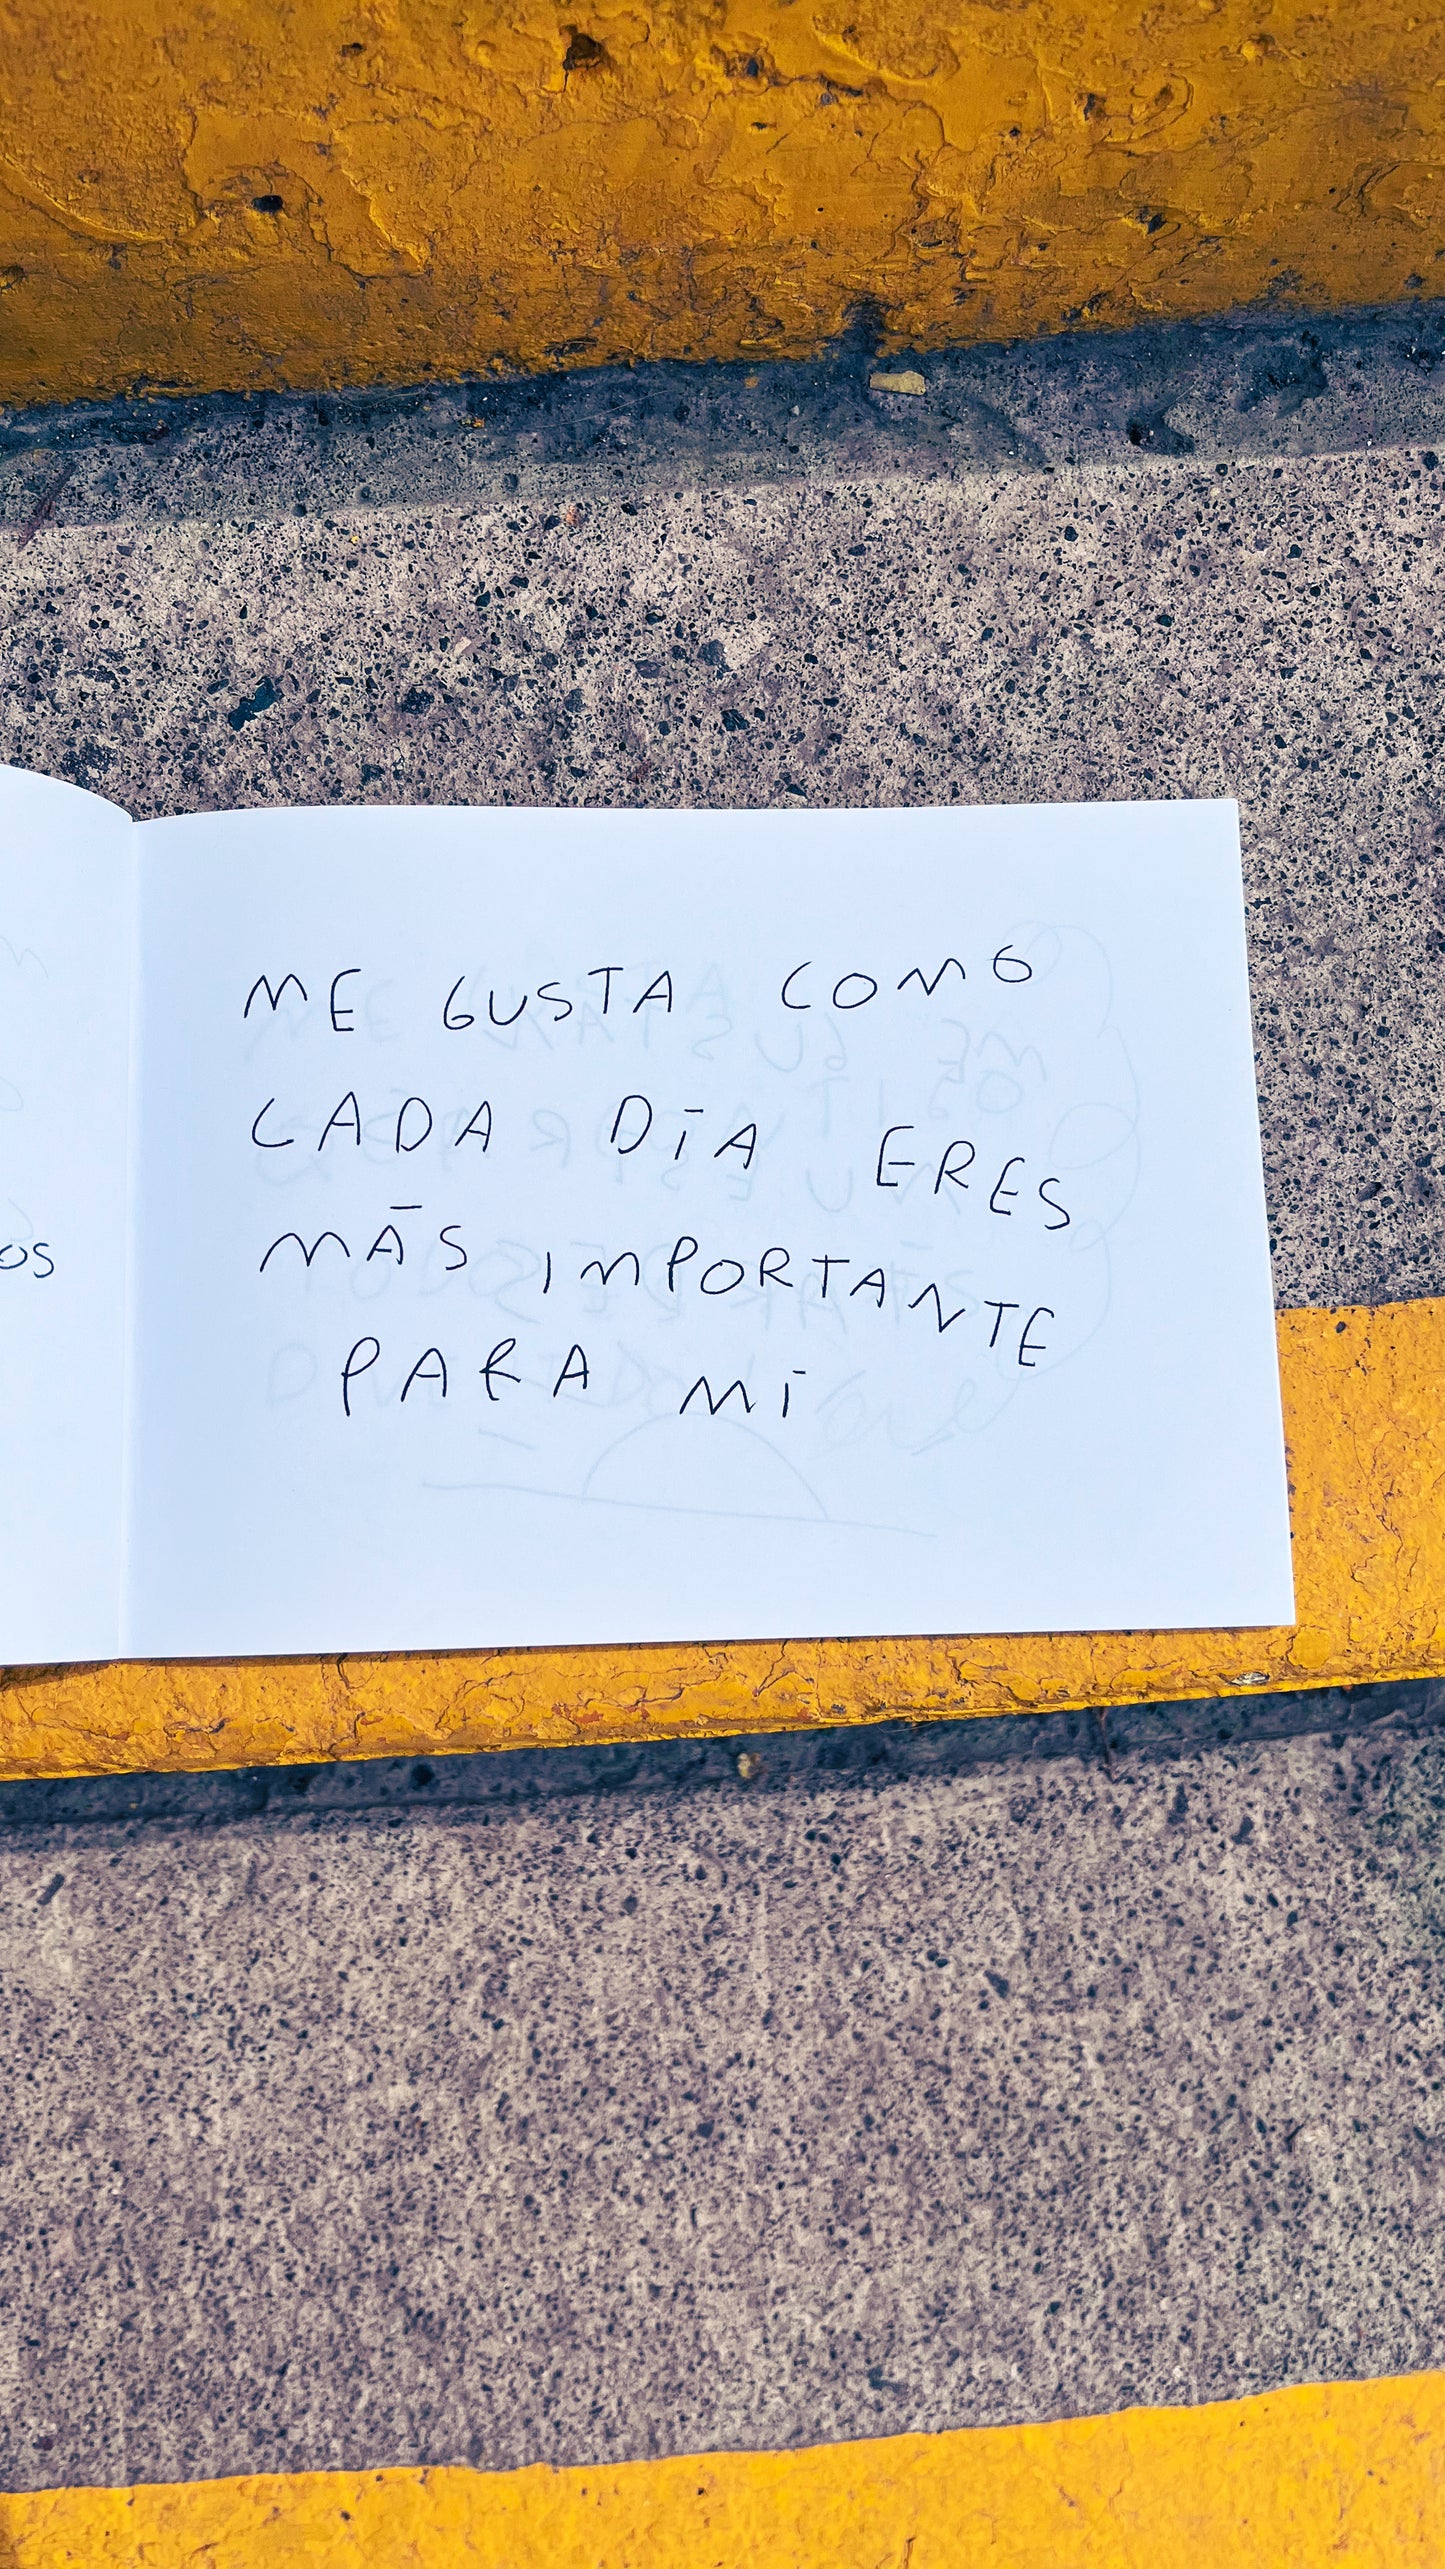 ME GUSTA COMO
CADA DÍA ERES
MÁS IMPORTANTE
PARA MÍ
OS